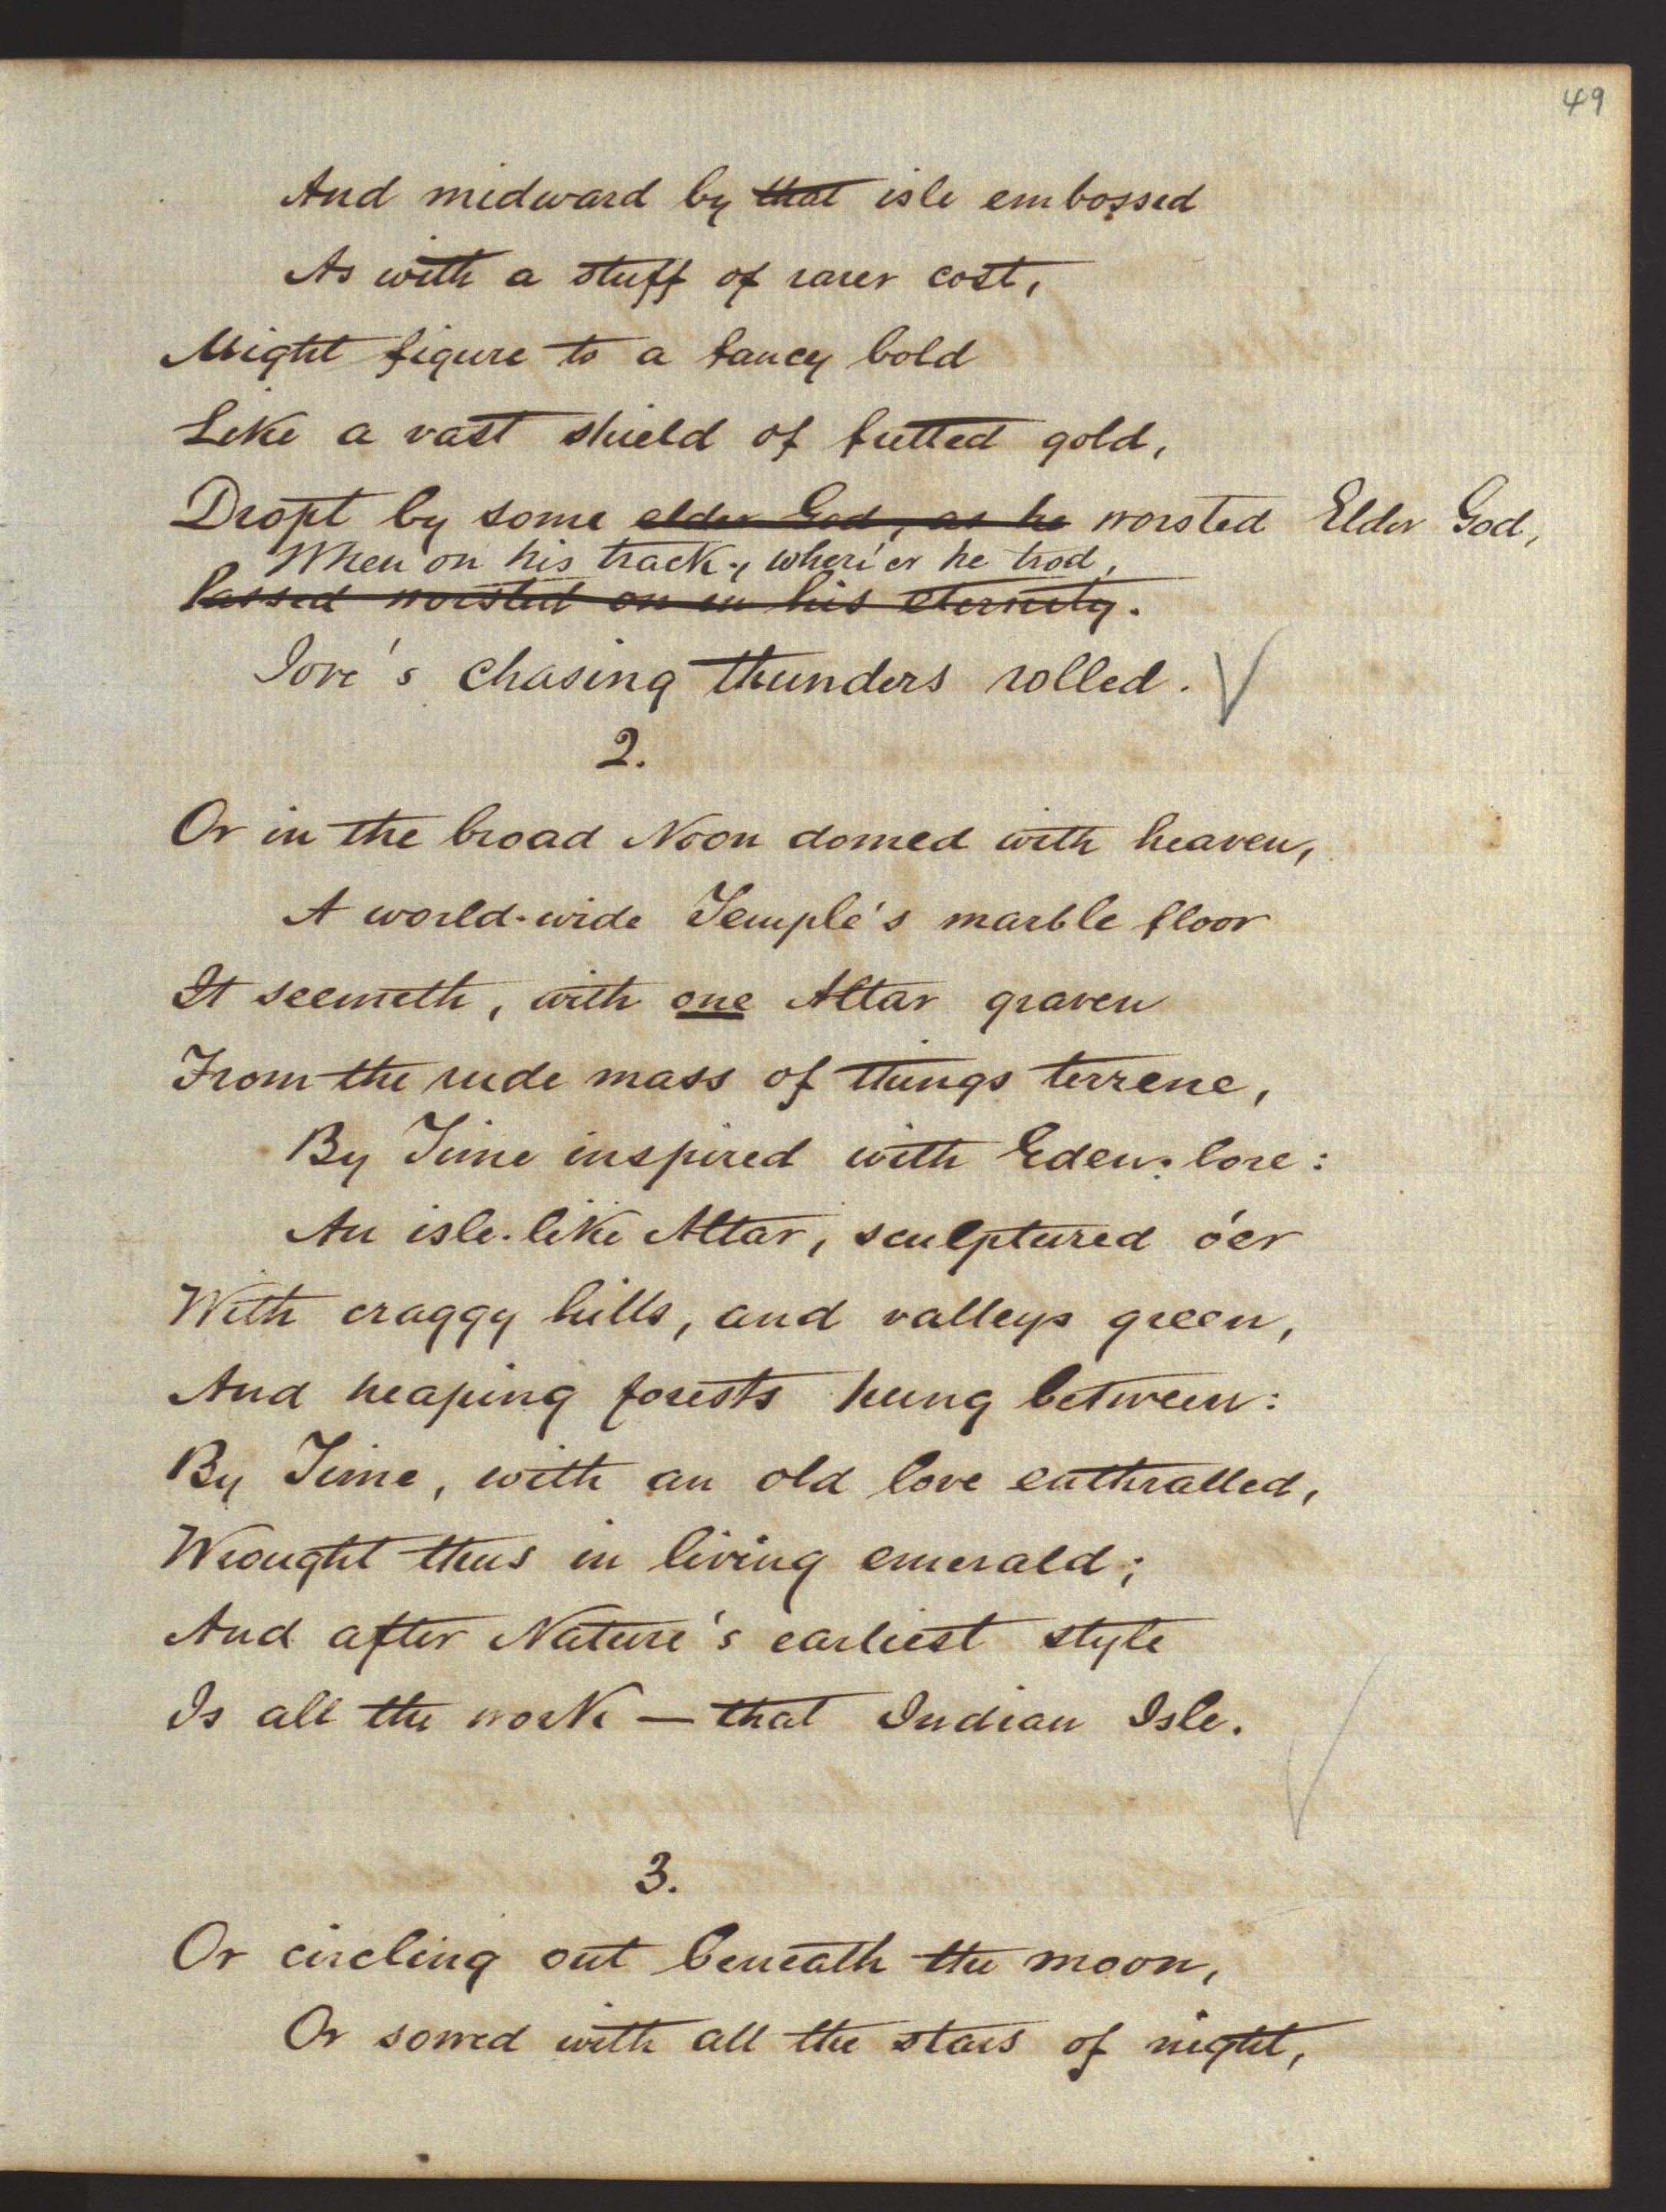 49
And midward by that isle embossed
As with a stuff of rarer cost,
Might figure to a fancy bold
Like a vast shield of fretted gold,
Dropt by some elder God, as he worsted Elder God,
When on his track, where'er he trod,
Passed worsted on in his eternity.
Jove's chasing thunders rolled.
2.
Or in the broad Noon domed with heaven,
A world-wide Temple's marble floor
It seemeth, with one Altar graven
From the rude mass of things terrene,
By Time inspired with Eden-lore:
An isle-like Altar, sculptured o'er
With craggy hills, and valleys green,
And heaping forests hung between:
By Time, with an old love enthralled,
Wrought thus in living emerald;
And after Nature's earliest style
Is all the work — that Indian Isle.
3.
Or circling out beneath the moon,
Or sowed with all the stars of night,